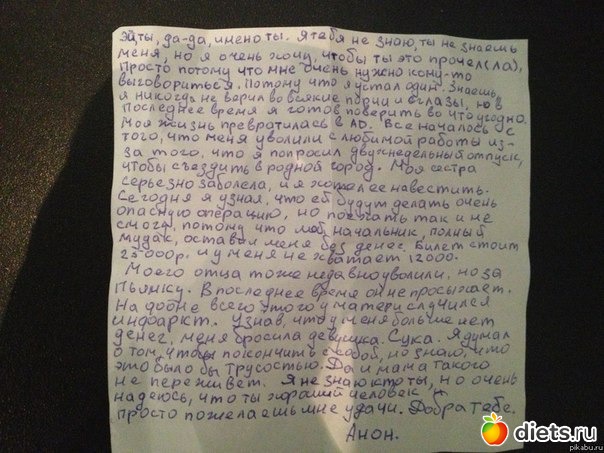 Эй,ты, да-да, имено ты. Я тебя не знаю, ты не знаешь
меня, но я очень хочу, чтобы ты это прочел(ла),
Просто потому что мне очень нужно кому-то
выговориться. Потому что я устал один. Знаешь,
я никогда не верил во всякие порчи и сглазы, но в
последнее время я готов поверить во что угодно.
Моя жизнь превратилась в АД. Все началось с
того, что меня уволили с любимой работы из-
за того, что я попросил двухнедельный отпуск,
чтобы съездить в родной город. Моя сестра
серьезно заболела, и я хотел ее навестить.
Сегодня я узнал, что ей будут делать очень
опасную операцию, но поехать так и не
смогу, потому что мой начальник, полный
мудак, оставил меня без денег. Билет стоит
25 000р. и у меня не хватает 12000.
Моего отца тоже недавно уволили, но за
пьянку. В последнее время он не просыхает.
На фоне всего этого у матери случился
инфаркт. Узнав, что у меня больше нет
денег, меня бросила девушка. Сука. Я думал
о том, чтобы покончить с собой, но знаю, что
это было бы трусостью. Да и мама такого
не переживет. Я не знаю кто ты, но очень
надеюсь, что ты хороший человек и
просто пожелаешь мне удачи. Добра тебе.
Анон.
diets.ru
pikabu.ru